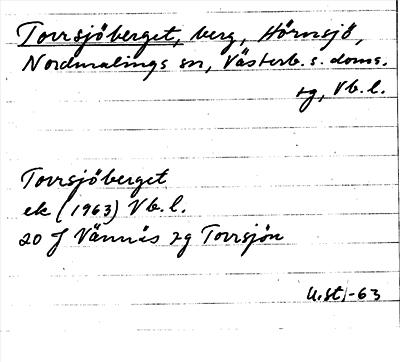 Torrsjöberget, berg, Hörnsjö,
Nordmalings sn, Västerb. s. doms.
sg, Vb. l.
Torrsjöberget
ek (1963) Vb. l.
20 J Vännäs 2g Torrsjön
U.st. -63